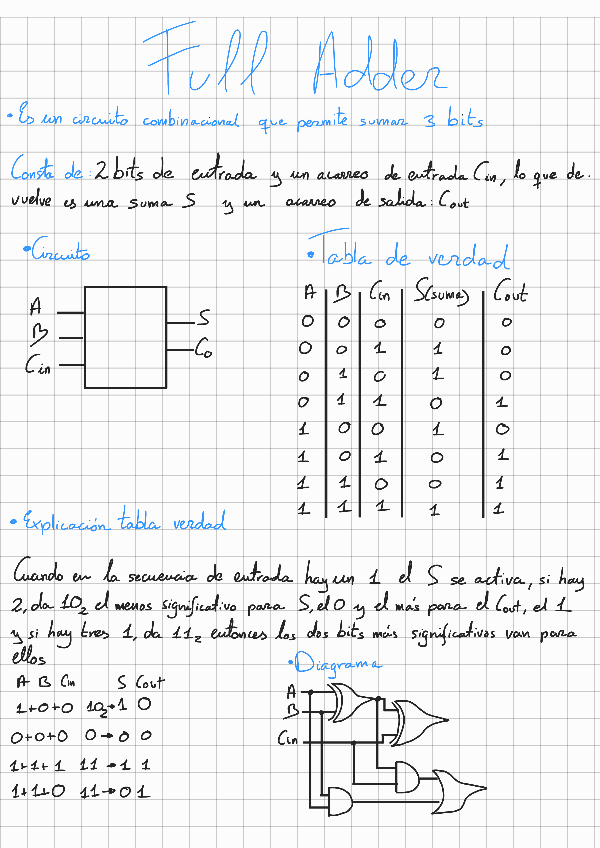 Full Adder
• Es un circuito combinacional que permite sumar 3 bits
Consta de: 2 bits de entrada y un acarreo de entrada Cin, lo que de-
vuelve es una suma S y un acarreo de salida: Cout
• Circuito
A
B
Cin
S
Co
• Tabla de verdad
A B Cin S(suma) Cout
0 0 0 0 0
0 0 1 1 0
0 1 0 1 0
0 1 1 0 1
1 0 0 1 0
1 0 1 0 1
1 1 0 0 1
1 1 1 1 1
• Explicación tabla verdad
Cuando en la secuencia de entrada hay un 1 el S se activa, si hay
2, da 10₂ el menos significativo para S, el 0 y el más para el Cout, el 1
y si hay tres 1, da 11₂ entonces los dos bits más significativos van para
ellos
A B Cin S Cout
1+0+0 10₂→1 0
0+0+0 0→0 0
1+1+1 11→1 1
1+1+0 11→0 1
• Diagrama
A
B
Cin